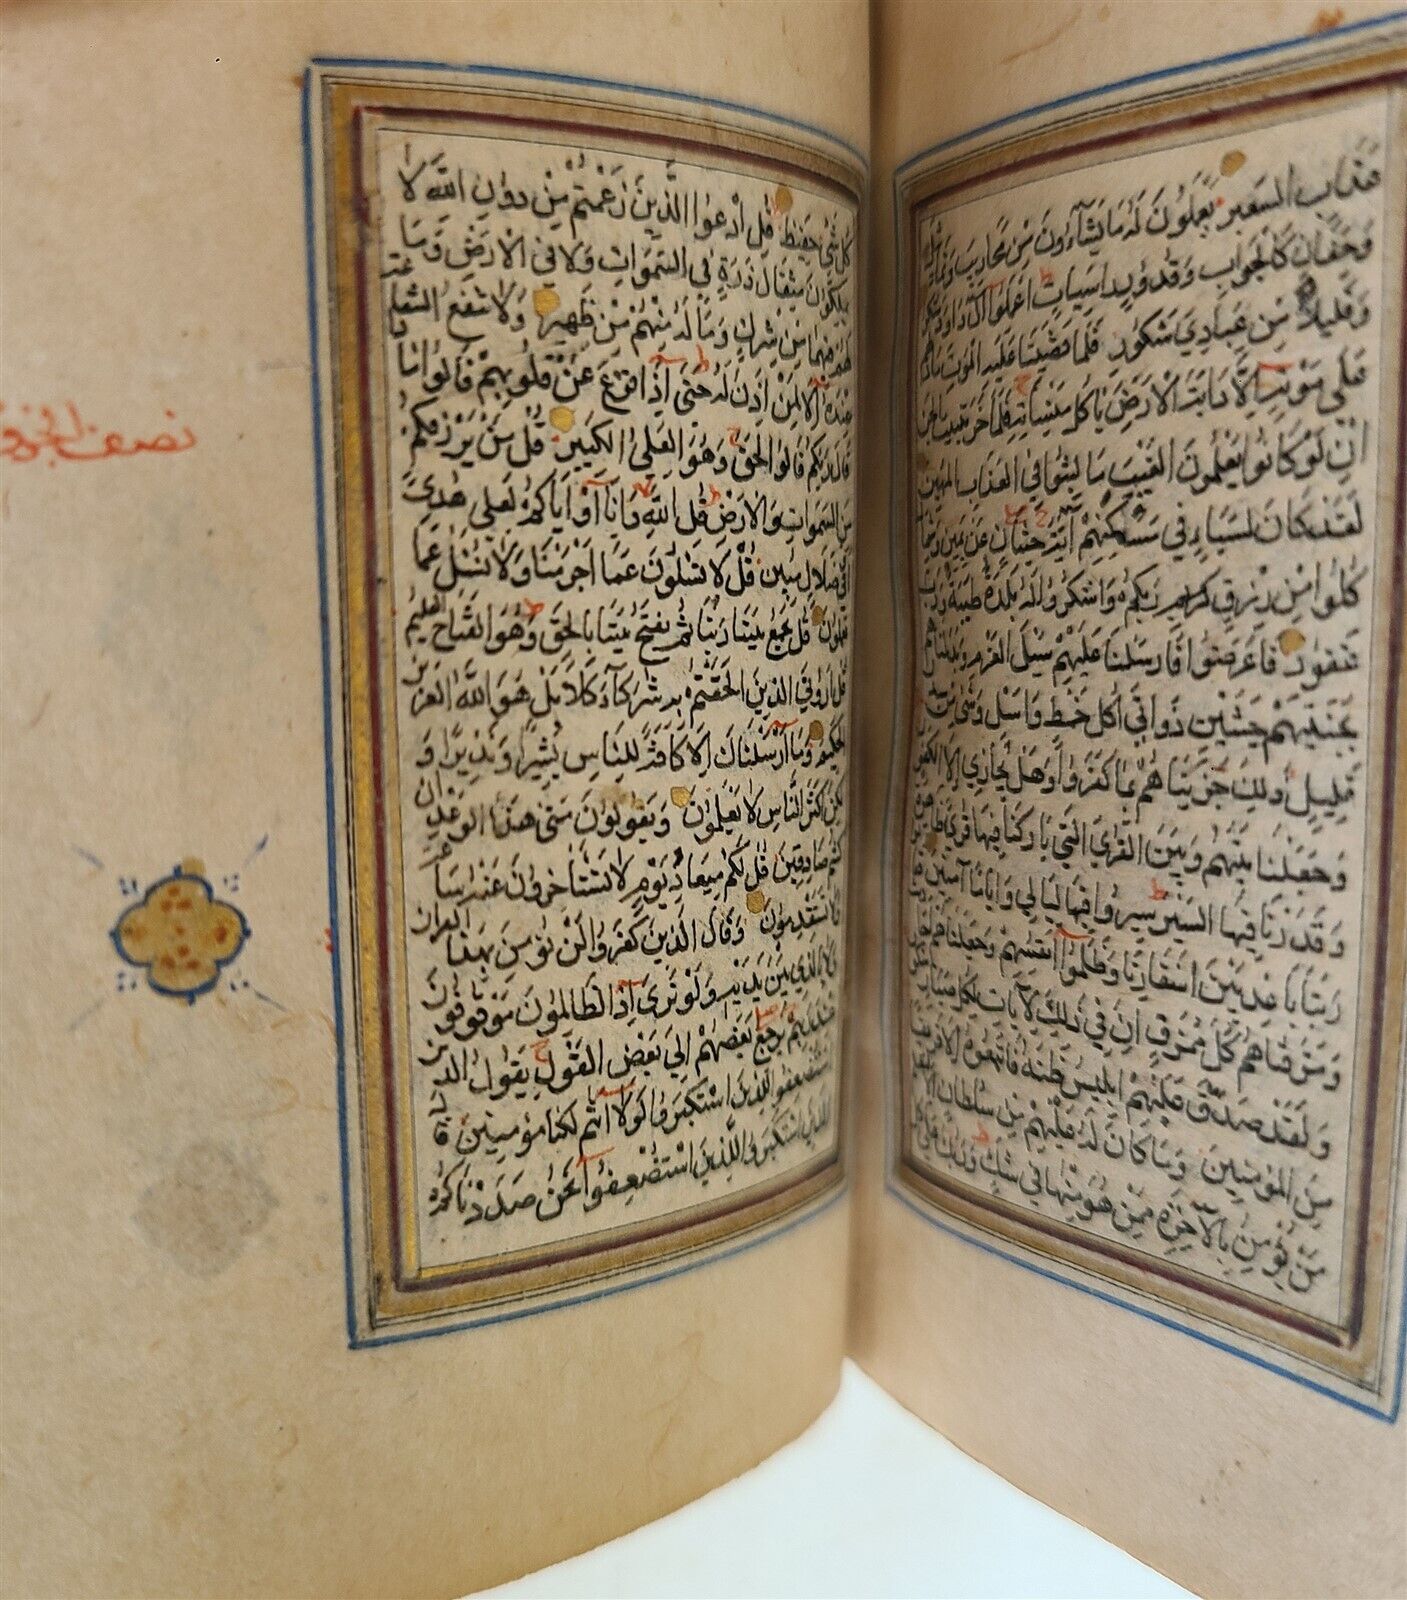 عذاب السعير يعملون له ما يشاءون من محاريب وتماثيل
وجفان كالجواب وقدور راسيات اعملوا ال داود شكرا
وقليلا من عبادي شكور فلما قضينا عليه الموت ما دلهم
على موته الا دابت الارض تاكل منساته فلما خر تبينت الجن
ان لو كانوا يعلمون الغيب ما لبثوا في العذاب المهين
لقد كان لسباء في مسكنهم آية جنتان عن يمين وشمال
كلوا من رزق ربكم واشكروا له بلدة طيبة ورب
غفور فاعرضوا فارسلنا عليهم سيل العرم وبدلناهم
بجنتيهم جنتين ذواتي اكل خمط واثل وشئ من سدر
قليل ذلك جزيناهم بما كفروا وهل نجازي الا الكفور
وجعلنا بينهم وبين القرى التي باركنا فيها قرى ظاهرة
وقدرنا فيها السير سيروا فيها ليالي واياما آمنين
ربنا باعد بين اسفارنا وظلموا انفسهم وجعلناهم احاديث
ومزقناهم كل ممزق ان في ذلك لآيات لكل صبار شكور
ولقد صدق عليهم ابليس ظنه فاتبعوه الا فريقا
من المؤمنين وما كان له عليهم من سلطان الا لنعلم
من يؤمن بالآخرة ممن هو منها في شك وربك على
كل شئ حفيظ قل ادعوا الذين زعمتم من دون الله لا
يملكون مثقال ذرة في السموات ولا في الارض وما
لهم فيهما من شرك وما له منهم من ظهير ولا تنفع الشفاعة
عنده الا لمن اذن له حتى اذا فزع عن قلوبهم قالوا ماذا
قال ربكم قالوا الحق وهو العلي الكبير قل من يرزقكم
من السموات والارض قل الله وانا او اياكم لعلى هدى
او في ضلال مبين قل لا تسئلون عما اجرمنا ولا نسئل عما
تعملون قل يجمع بيننا ربنا ثم يفتح بيننا بالحق وهو الفتاح العليم
قل اروني الذين الحقتم به شركاء كلا بل هو الله العزيز
الحكيم وما ارسلناك الا كافة للناس بشيرا ونذيرا و
لكن اكثر الناس لا يعلمون ويقولون متى هذا الوعد ان
كنتم صادقين قل لكم ميعاد يوم لا تستأخرون عنه ساعة
ولا تستقدمون وقال الذين كفروا لن نؤمن بهذا القران
ولا بالذي بين يديه ولو ترى اذ الظالمون موقوفون
عند ربهم يرجع بعضهم الى بعض القول يقول الذين
استضعفوا للذين استكبروا لولا انتم لكنا مؤمنين قال
الذين استكبروا للذين استضعفوا انحن صددناكم
نصف الجزو